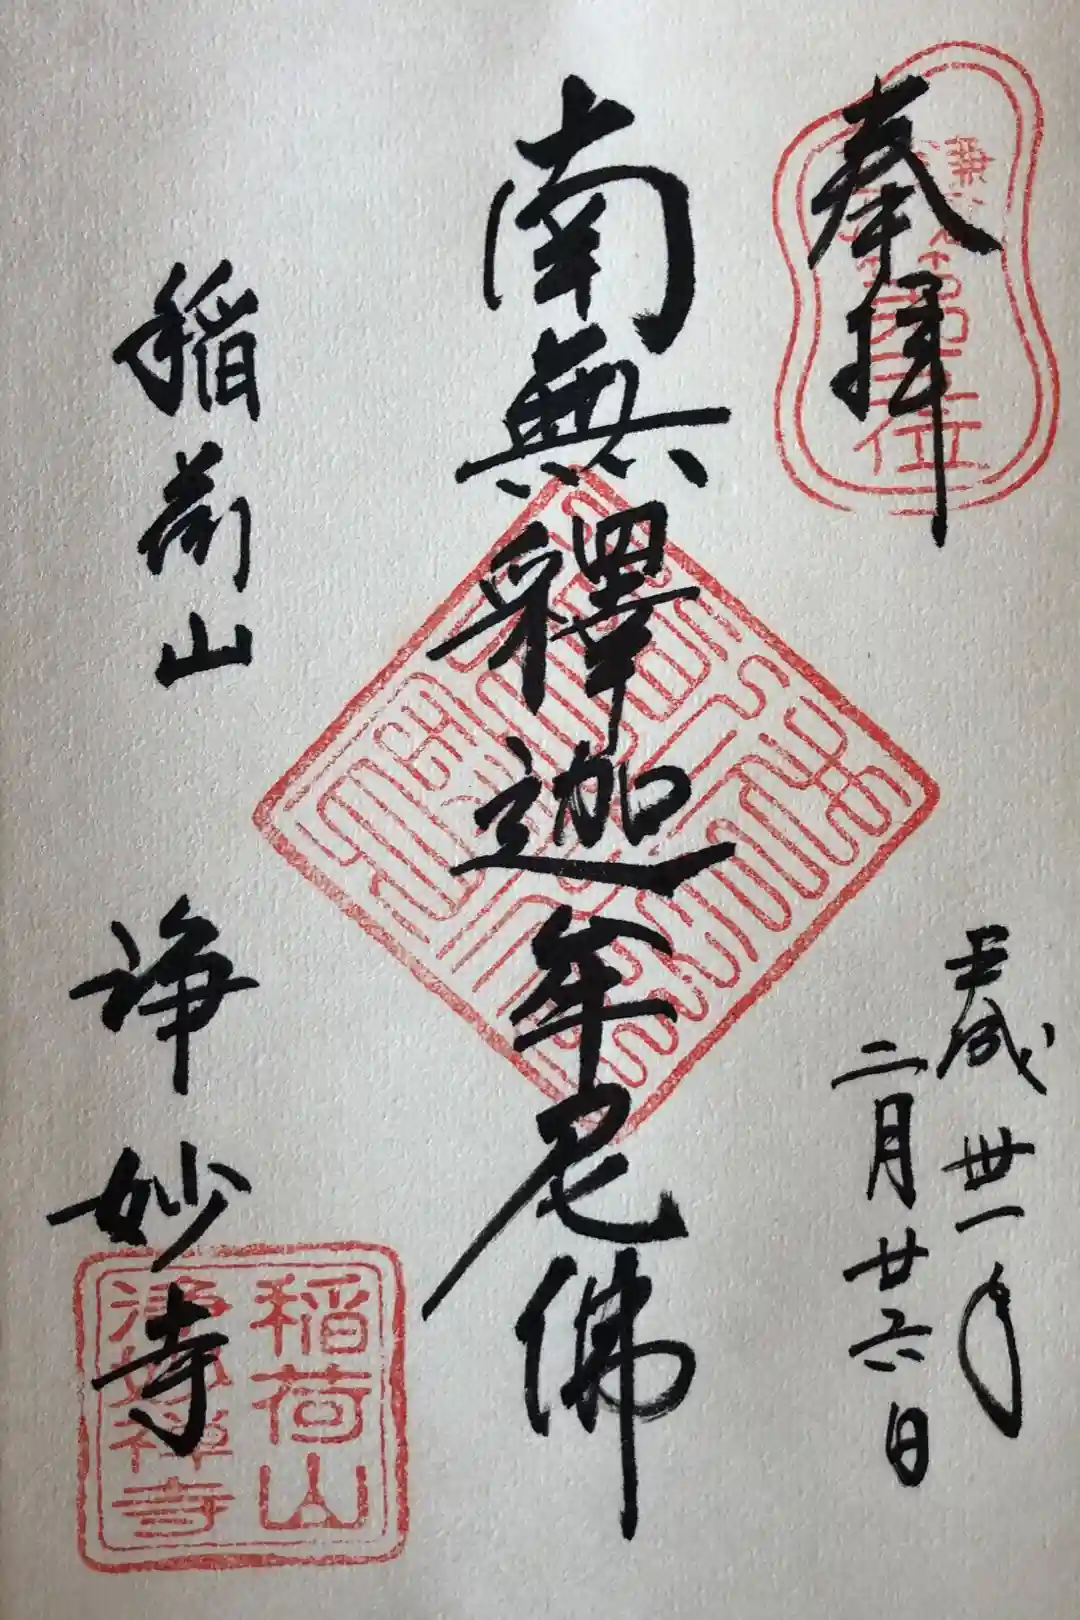 奉拝
平成卅一年
二月廿六日
南無釋迦牟尼佛
稲荷山 浄妙寺
稲荷山
浄妙禅寺